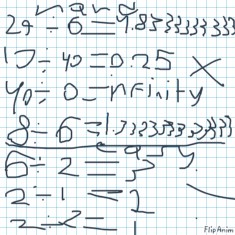 hard
29÷6=4.83333333333
10÷40=0.25
40÷0=nfinity
8÷6=1.3333333333
easy
6÷2=3
2÷1=2
2÷2=1
FlipAnim